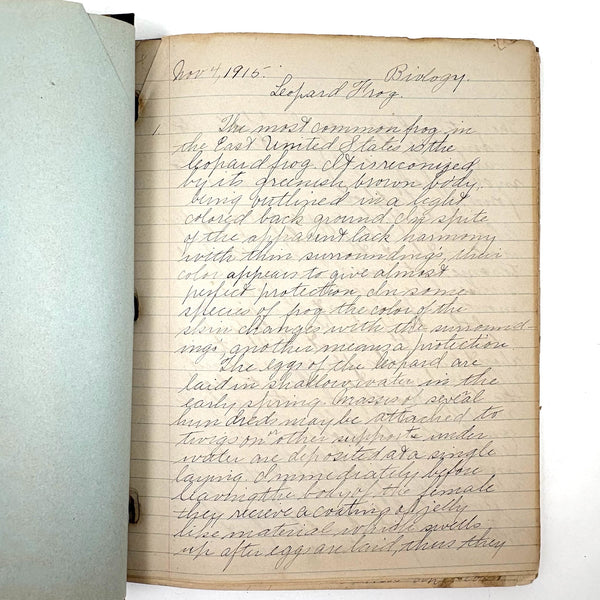 Nov 4, 1915. Biology.
Leopard Frog.
1
The most common frog in
the East United States is the
leopard frog. It is reconized
by its greenish brown body,
being outlined in a light
colored back ground. In spite
of the apparent lack harmony
with thin surroundings, their
color appears to give almost
perfect protection. In some
species of frog the color of the
skin changes with the surround-
ings, another means a protection
The eggs of the leopard are
laid in shallow water in the
early spring. Masses of several
hundreds may be attached to
twigs or other supports under
water are deposited at a single
laying. Immediately before
leaving the body of the female
they recieve a coating of jelly
like material which swells
up after eggs are laid, thus they